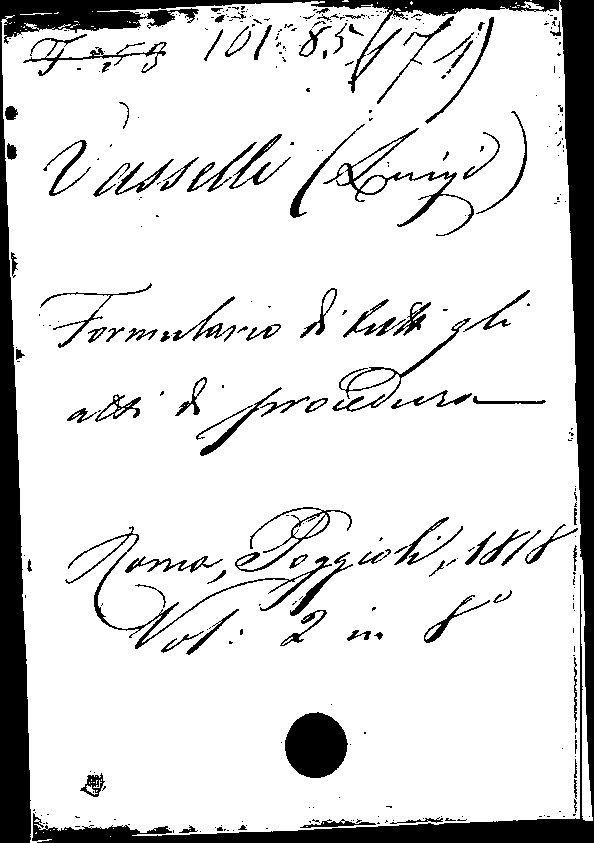 101 85 (171)
Vasselli (Luigi)
Formulario di tutti gli
atti di procedura
Roma, Poggioli, 1818
Vol: 2 in 8º